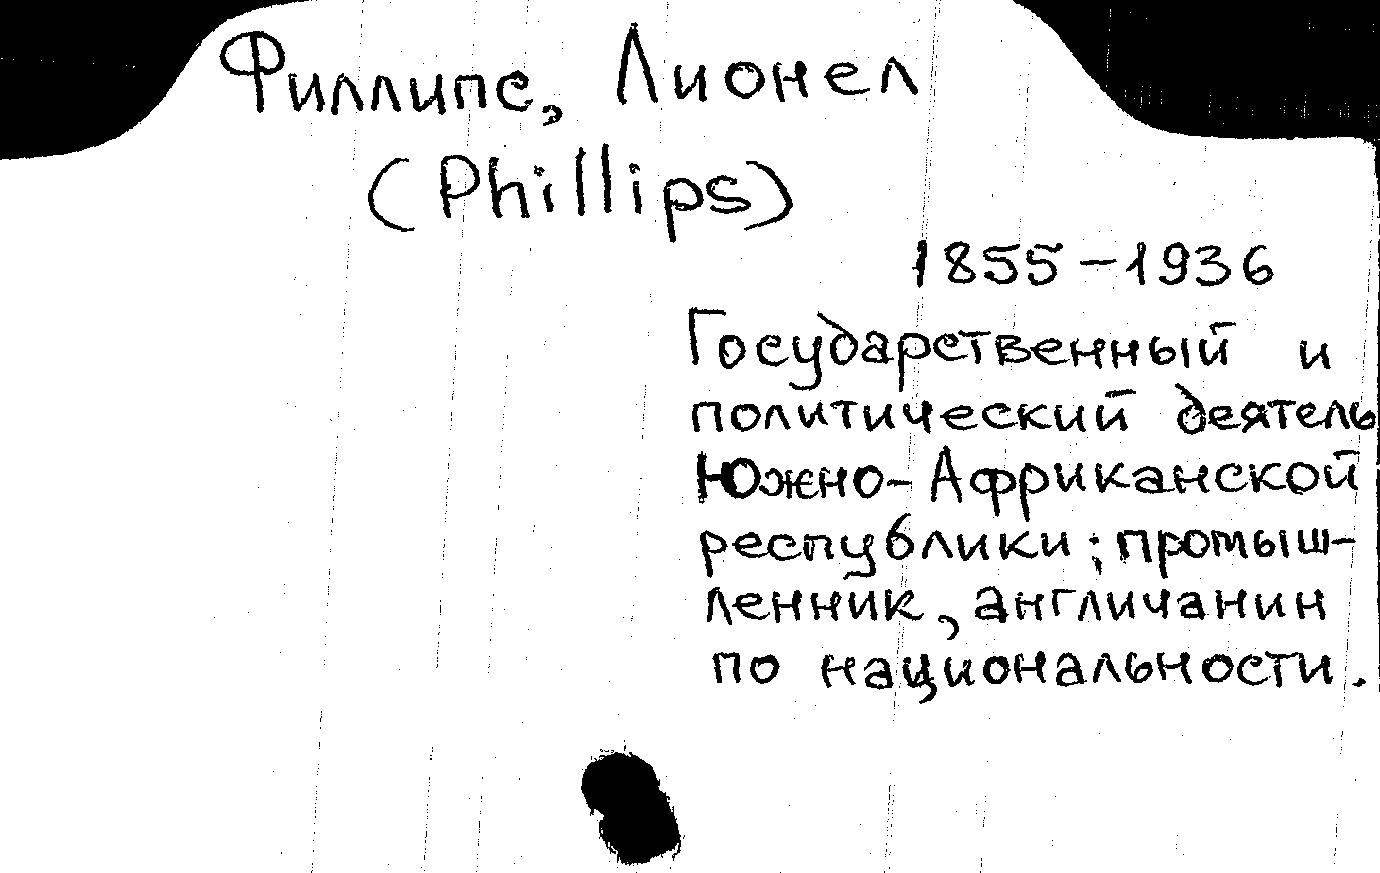 Филлипс, Лионел
(Phillips)
1855-1936
Государственный и
политический деятель
Южно-Африканской
республики; промыш-
ленник, англичанин
по национальности.